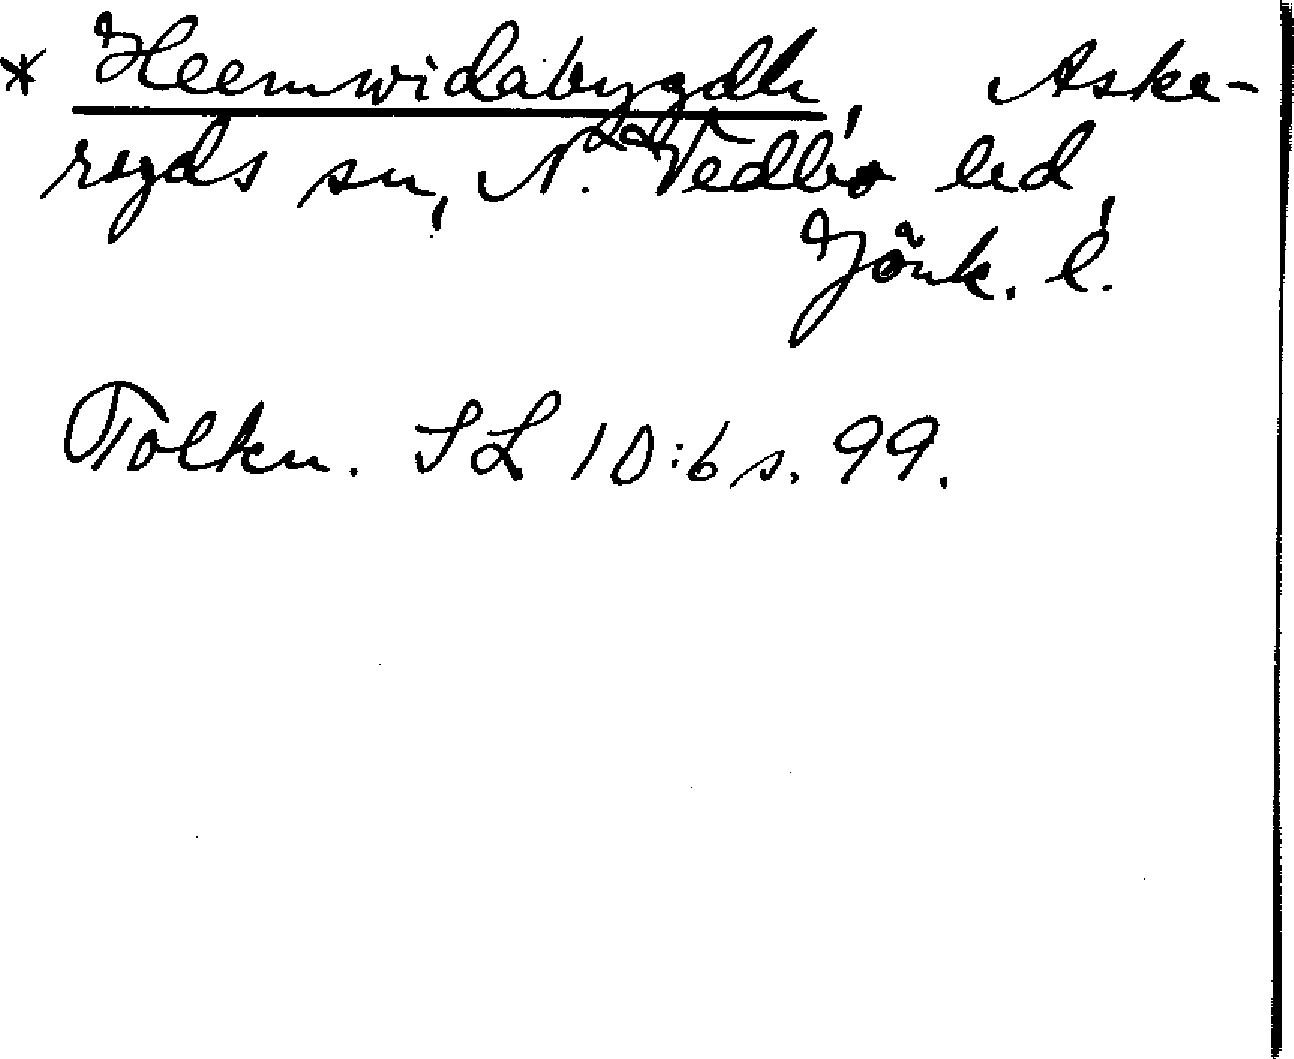 * Heemwidabygdh, Aske-
ryds sn, N. Vedbo hd,
Jönk. l.
Tolkn. SL 10:6 s. 99.